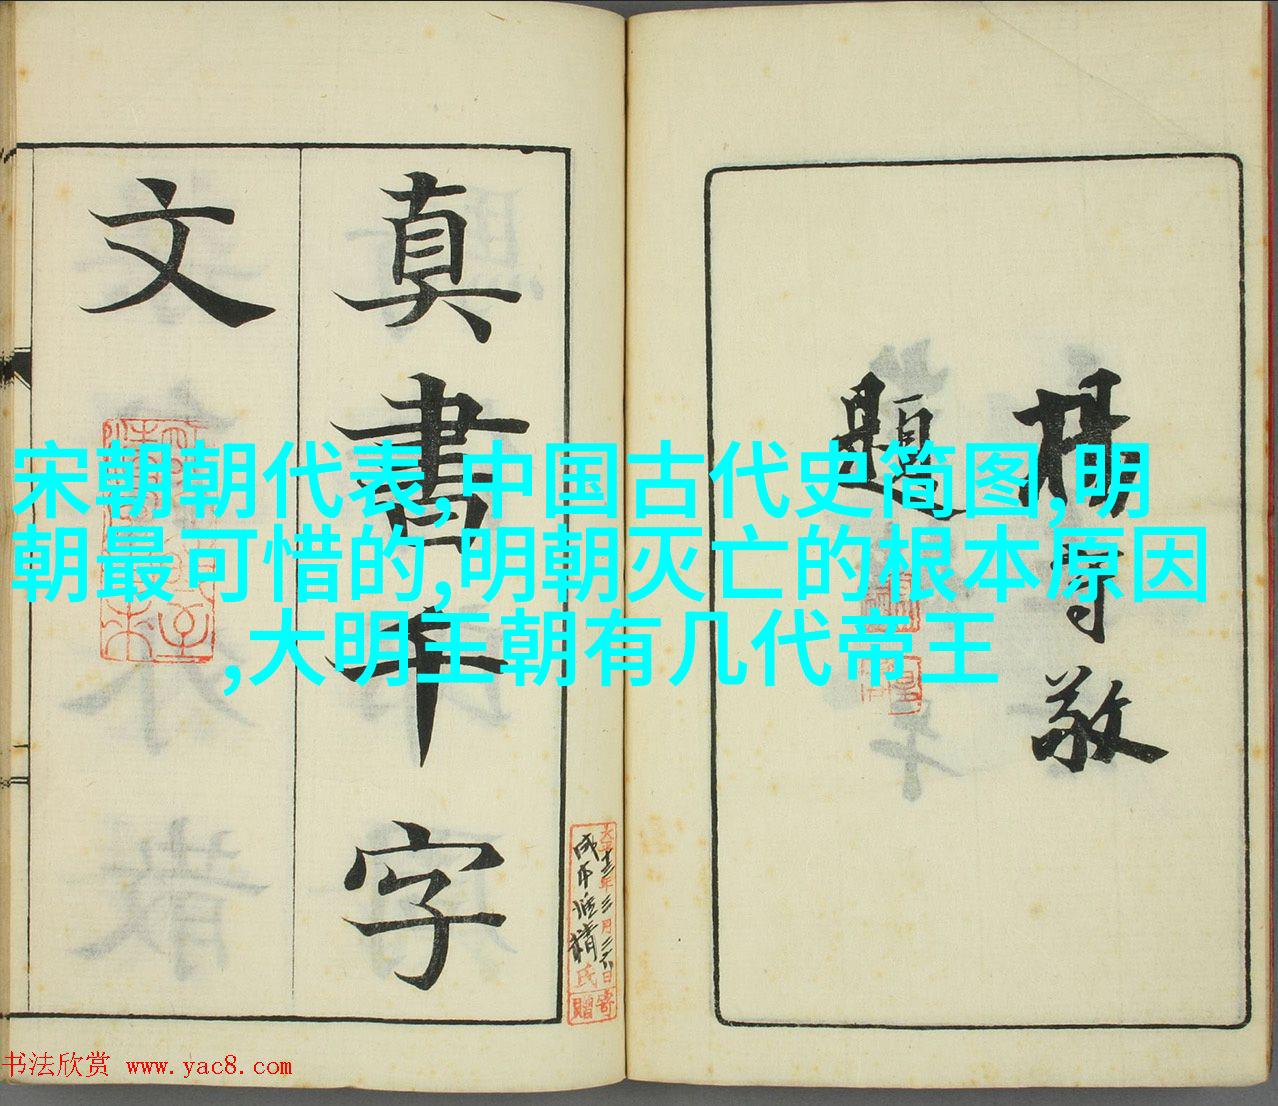 楊守敬
題
真書千字
文
宋朝朝代表,中国古代史简图,明
朝最可惜的,明朝灭亡的根本原因
,大明王朝有几代帝王
氏
寄贈
书法欣赏 www.yac8.com